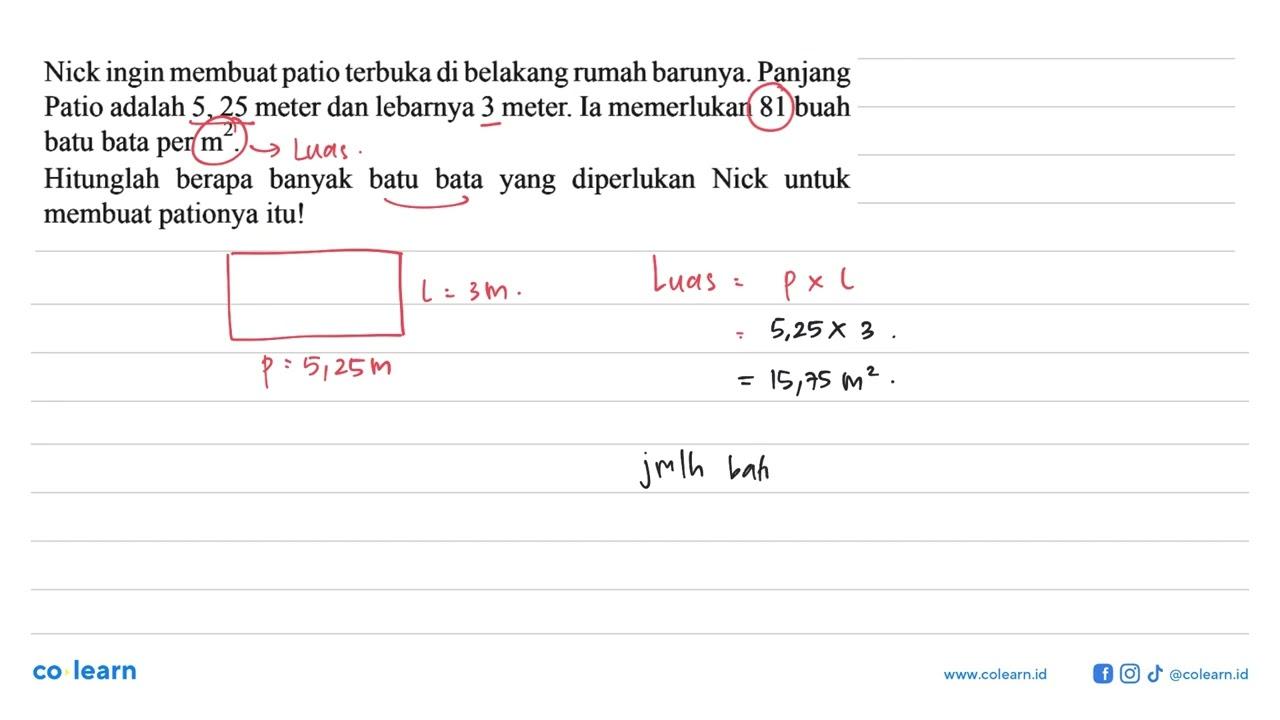 Nick ingin membuat patio terbuka di belakang rumah barunya. Panjang
Patio adalah 5, 25 meter dan lebarnya 3 meter. Ia memerlukan 81 buah
batu bata per m². → Luas.
Hitunglah berapa banyak batu bata yang diperlukan Nick untuk
membuat pationya itu!
l = 3m.
p = 5,25m
Luas = p x l
= 5,25 x 3.
= 15,75 m².
jmlh
co learn
www.colearn.id
@colearn.id